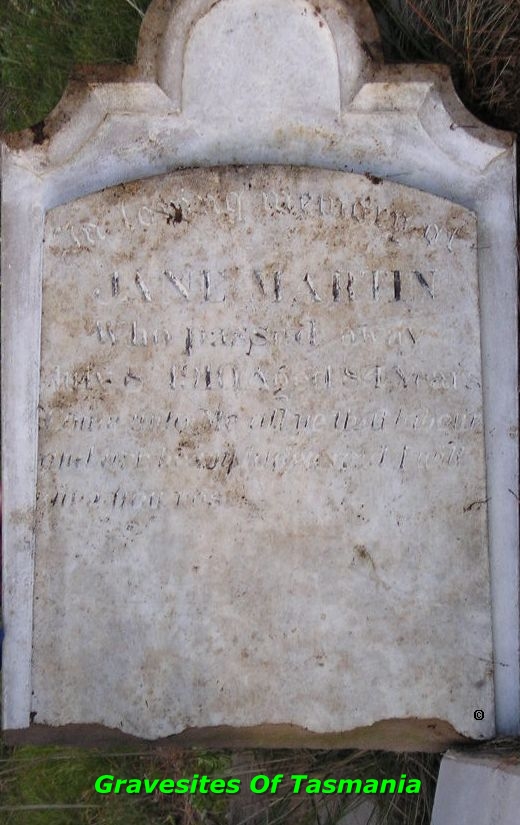 In loving memory of
JANE MARTIN
Who passed away
July 8 1910 Aged 84 Years
Come unto Me all ye that labour
and are heavy laden and I will
give you rest
©
Gravesites Of Tasmania